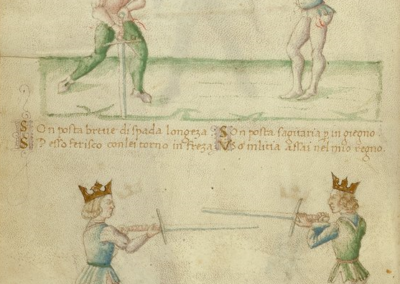 SOn posta breue di spada longeza
SPesso ferisco con lei torno in freza
SOn posta sagitaria p ingegno
VSo militia assai nel mio regno.